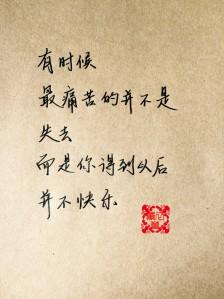 有时候
最痛苦的并不是
失去
而是你得到以后
并不快乐